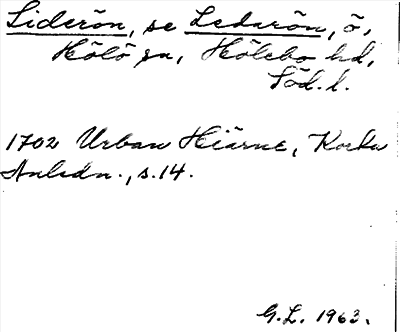 Liderön, se Ledarön, ö,
Hölö sn, Hölebo hd,
Söd. l.
1702 Urban Hiärne, Korta
Anledn., s. 14.
G.L. 1963.